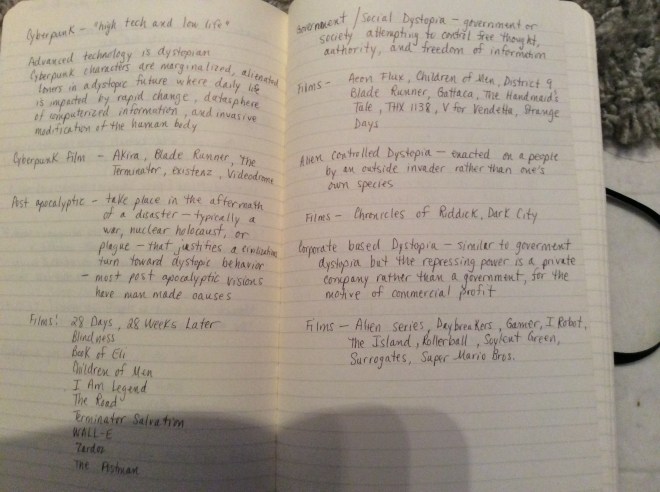 Cyberpunk - "high tech and low life"
Advanced technology is dystopian
Cyberpunk characters are marginalized, alienated
loners in a dystopic future where daily life
is impacted by rapid change, datasphere
of computerized information, and invasive
modification of the human body
Cyberpunk Film - Akira, Blade Runner, The
Terminator, existenz, Videodrome
Post apocalyptic - take place in the aftermath
of a disaster - typically a
war, nuclear holocaust, or
plague - that justifies a civilizations
turn toward dystopic behavior
- most post apocalyptic visions
have man made causes
Films: 28 Days, 28 Weeks Later
Blindness
Book of Eli
Children of Men
I Am Legend
The Road
Terminator Salvation
WALL-E
Zardoz
The Postman
Government / Social Dystopia - government or
society attempting to control free thought,
authority, and freedom of information
Films - Aeon Flux, Children of Men, District 9,
Blade Runner, Gattaca, The Handmaid's
Tale, THX 1138, V for Vendetta, Strange
Days
Alien Controlled Dystopia - enacted on a people
by an outside invader rather than one's
own species
Films - Chronicles of Riddick, Dark City
Corporate based Dystopia - similar to goverment
dystopia but the repressing power is a private
company rather than a government, for the
motive of commercial profit
Films - Alien series, Daybreakers, Gamer, I Robot,
The Island, Rollerball, Soylent Green,
Surrogates, Super Mario Bros.